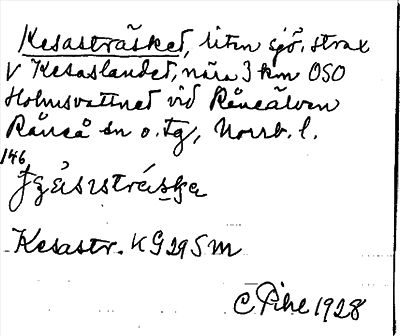 Kesasträsket, liten sjö, strax
V Kesaslandet, nära 3 km OSO
Holmsvattnet vid Råneälven
Råneå sn o. tg, Norrb. l.
146
Kesastr. KG 29 S m
C Pihl 1928